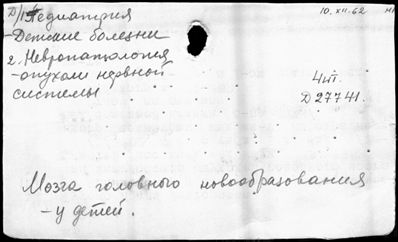 Д/1 Педиатрия
10.XII.62
- Детские болезни
2. Невропатология
- опухали нервной
системы
4 шт.
Д 27741.
Мозга головного новообразования
- у детей.